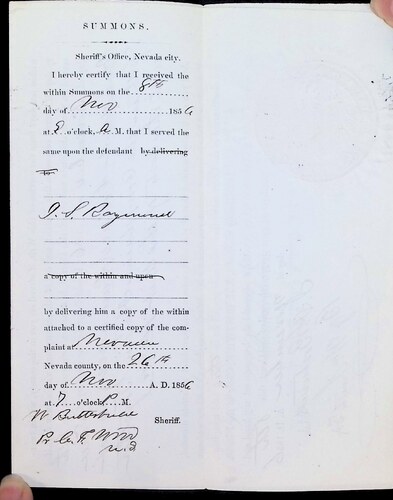 SUMMONS.
Sheriff's Office, Nevada city.
I hereby certify that I received the
within Summons on the 8th
day of Nov 1856
at 8 o'clock, a.M. that I served the
same upon the defendant by delivering
to
I. S. Raymond
a copy of the within and upon
by delivering him a copy of the within
attached to a certified copy of the com-
plaint at Nevada
Nevada county, on the 26th
day of Nov A. D. 1856
at 7 o'clock P. M.
W Butterfield
Sheriff.